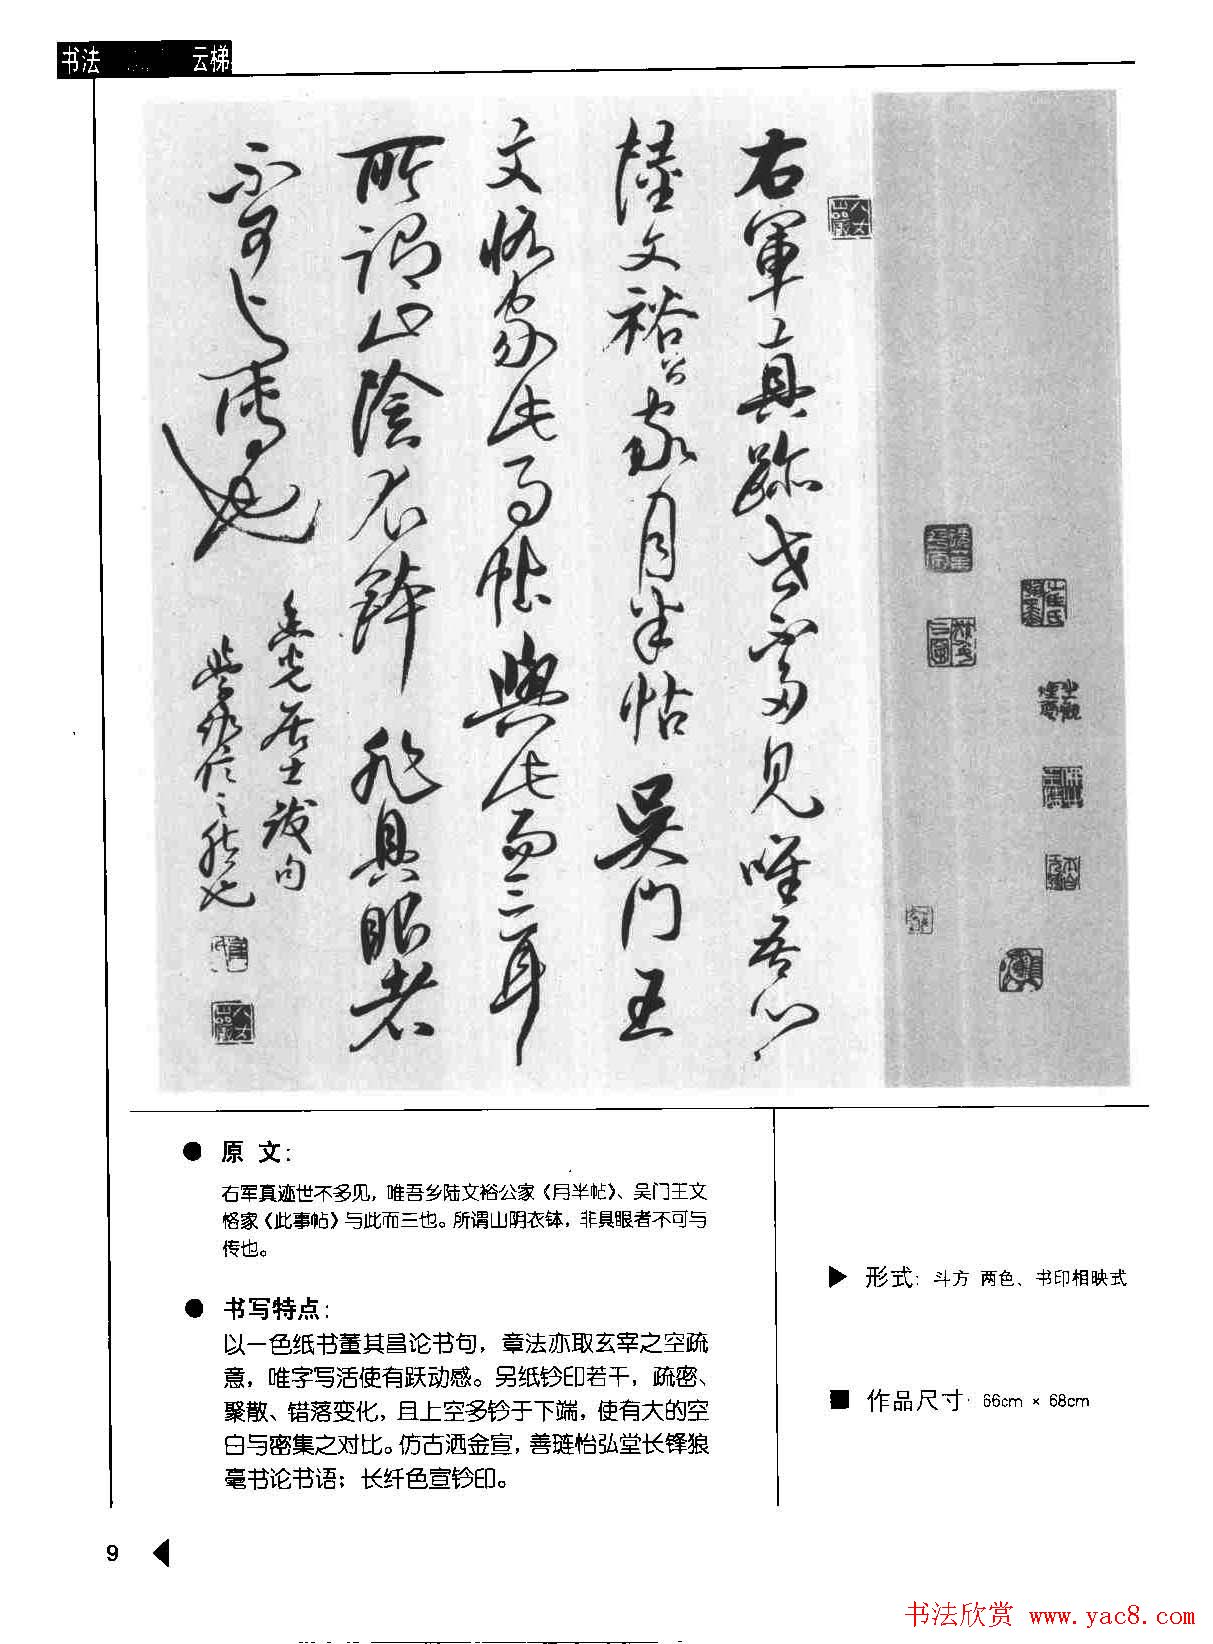 书法 云梯
右軍真跡世不多見唯吾鄉
陸文裕公家月半帖吴門王
文恪家此事帖與此而三耳
所謂山陰衣鉢非具眼者
不可与傳也
玄光居士跋句
原 文：
右军真迹世不多见，唯吾乡陆文裕公家《月半帖》、吴门王文
恪家《此事帖》与此而三也。所谓山阴衣钵，非具眼者不可与
传也。
书写特点：
以一色纸书董其昌论书句，章法亦取玄宰之空疏
意，唯字写活使有跃动感。另纸钤印若干，疏密、
聚散、错落变化，且上空多钤于下端，使有大的空
白与密集之对比。仿古洒金宣，善琏怡弘堂长锋狼
毫书论书语；长纤色宣钤印。
形式：斗方 两色、书印相映式
作品尺寸：66cm × 68cm
9
书法欣赏 www.yac8.com